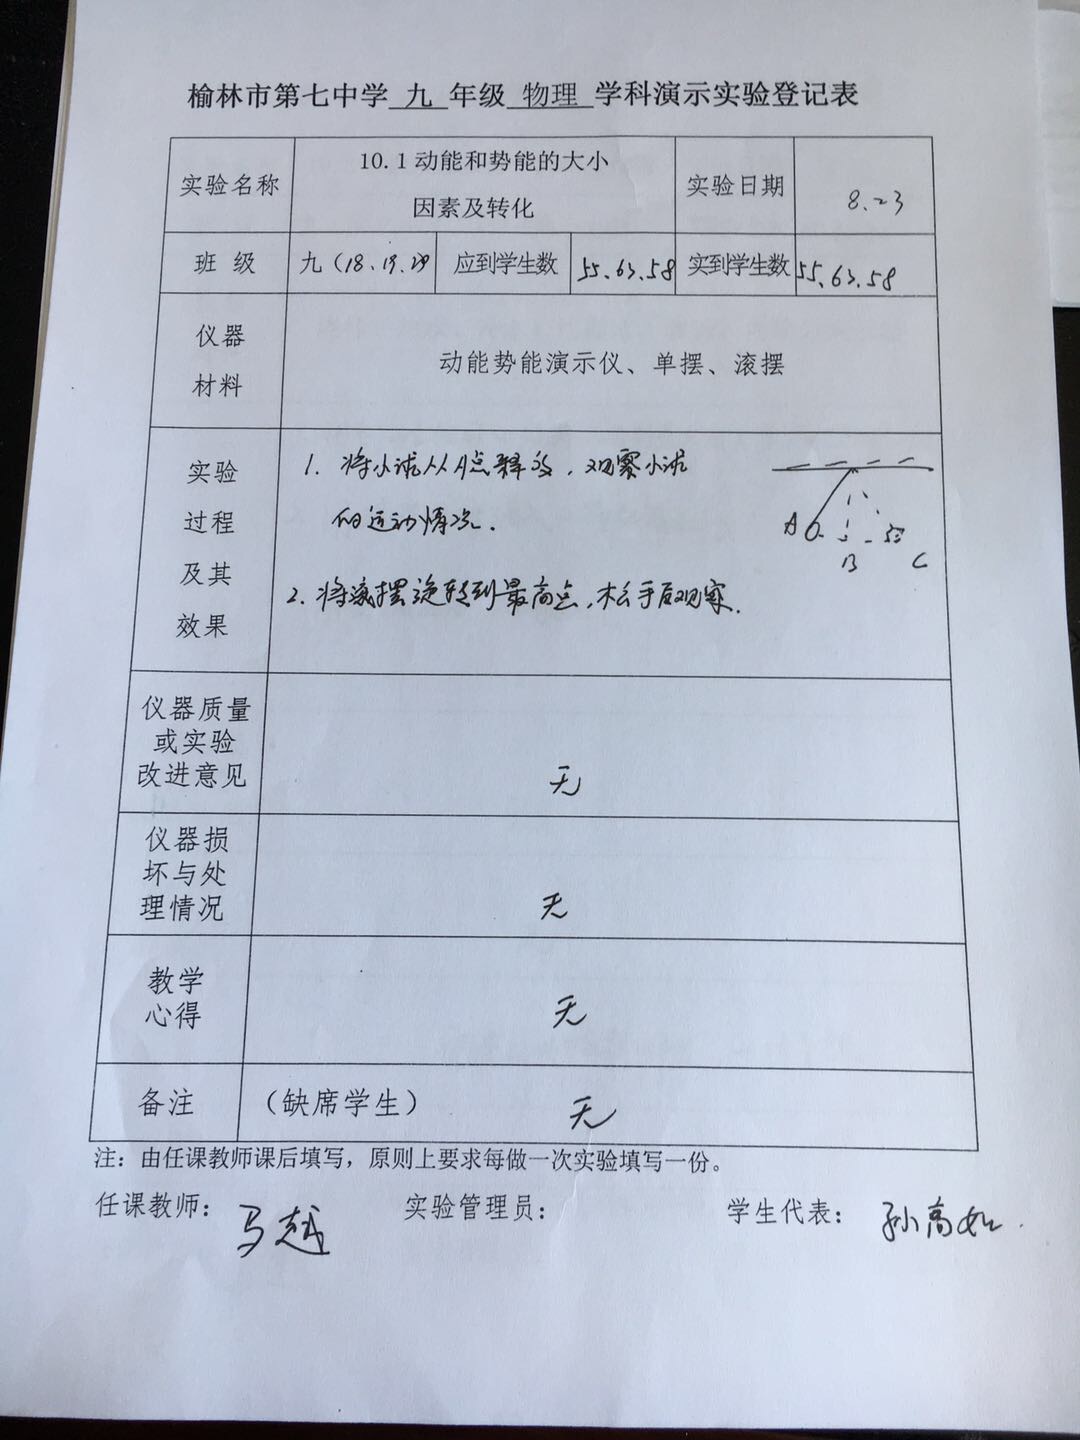 榆林市第七中学 九 年级 物理 学科演示实验登记表
实验名称
10.1动能和势能的大小
因素及转化
实验日期
8.23
班 级
九（18、19、29
应到学生数
55、63、58
实到学生数
55、63、58
仪器
材料
动能势能演示仪、单摆、滚摆
实验
过程
及其
效果
1. 将小球从A点释放，观察小球
的运动情况.
A
B
C
2. 将滚摆旋转到最高点，松手后观察.
仪器质量
或实验
改进意见
无
仪器损
坏与处
理情况
无
教学
心得
无
备注
（缺席学生）
无
注：由任课教师课后填写，原则上要求每做一次实验填写一份。
任课教师：马越 实验管理员： 学生代表：孙高